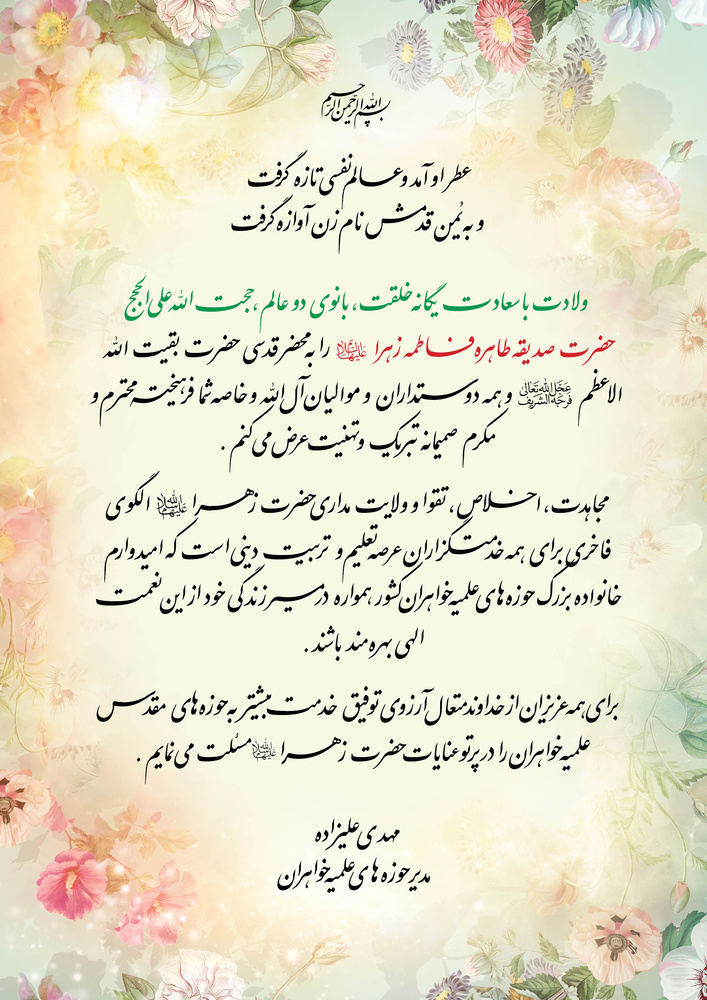 بسم الله الرحمن الرحیم
عطر او آمد و عالم نفسی تازه گرفت
و به یُمن قدمش نام زن آوازه گرفت
ولادت با سعادت یگانه خلقت، بانوی دو عالم ،حجت الله علی الحجج
حضرت صدیقه طاهره فاطمه زهرا علیهاالسلام را به محضر قدسی حضرت بقیت الله
الاعظم عجل الله تعالی فرجه الشریف و همه دوستداران و موالیان آل الله و خاصه شما فرهیخته محترم و
مکرم صمیمانه تبریک و تهنیت عرض می کنم .
مجاهدت، اخلاص، تقوا و ولایت مداری حضرت زهرا سلام الله علیها الگوی
فاخری برای همه خدمتگزاران عرصه تعلیم و تربیت دینی است که امیدوارم
خانواده بزرگ حوزه های علمیه خواهران کشور همواره در مسیر زندگی خود از این نعمت
الهی بهره مند باشند .
برای همه عزیزان از خداوند متعال آرزوی توفیق خدمت بیشتر به حوزه های مقدس
علمیه خواهران را در پرتو عنایات حضرت زهرا سلام الله علیها مسئلت می نمایم .
مهدی علیزاده
مدیر حوزه های علمیه خواهران